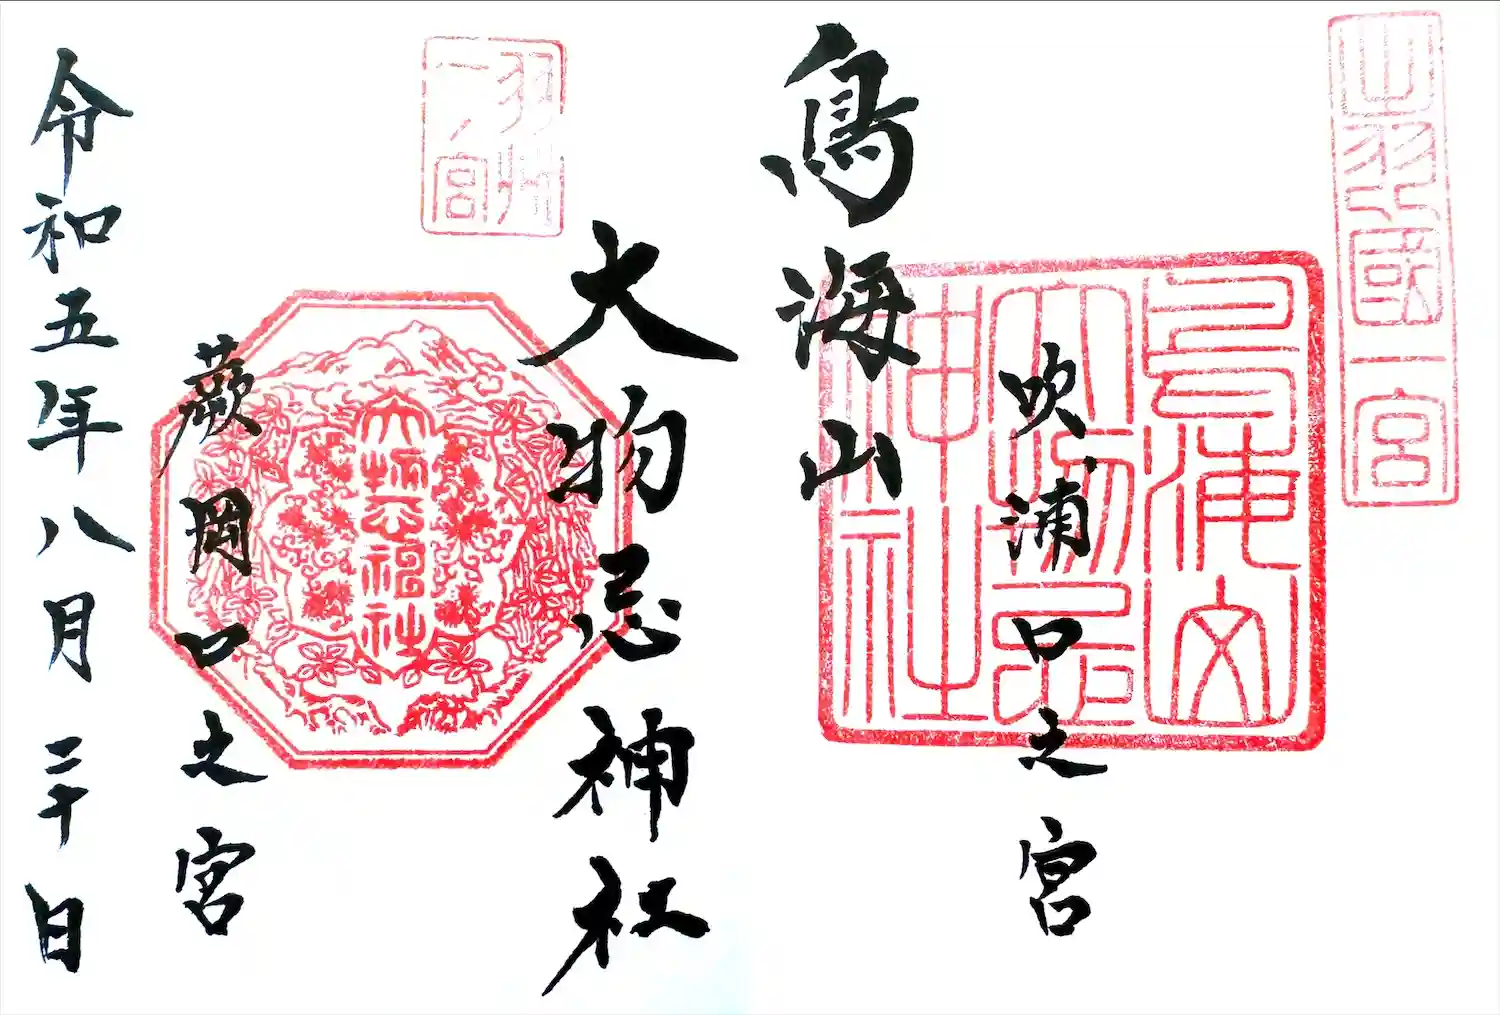 出羽國一宮
鳥海山大物忌神社
吹浦口之宮
鳥海山
大物忌神社
羽州一ノ宮
大物忌神社
蕨岡口之宮
令和五年八月二十日